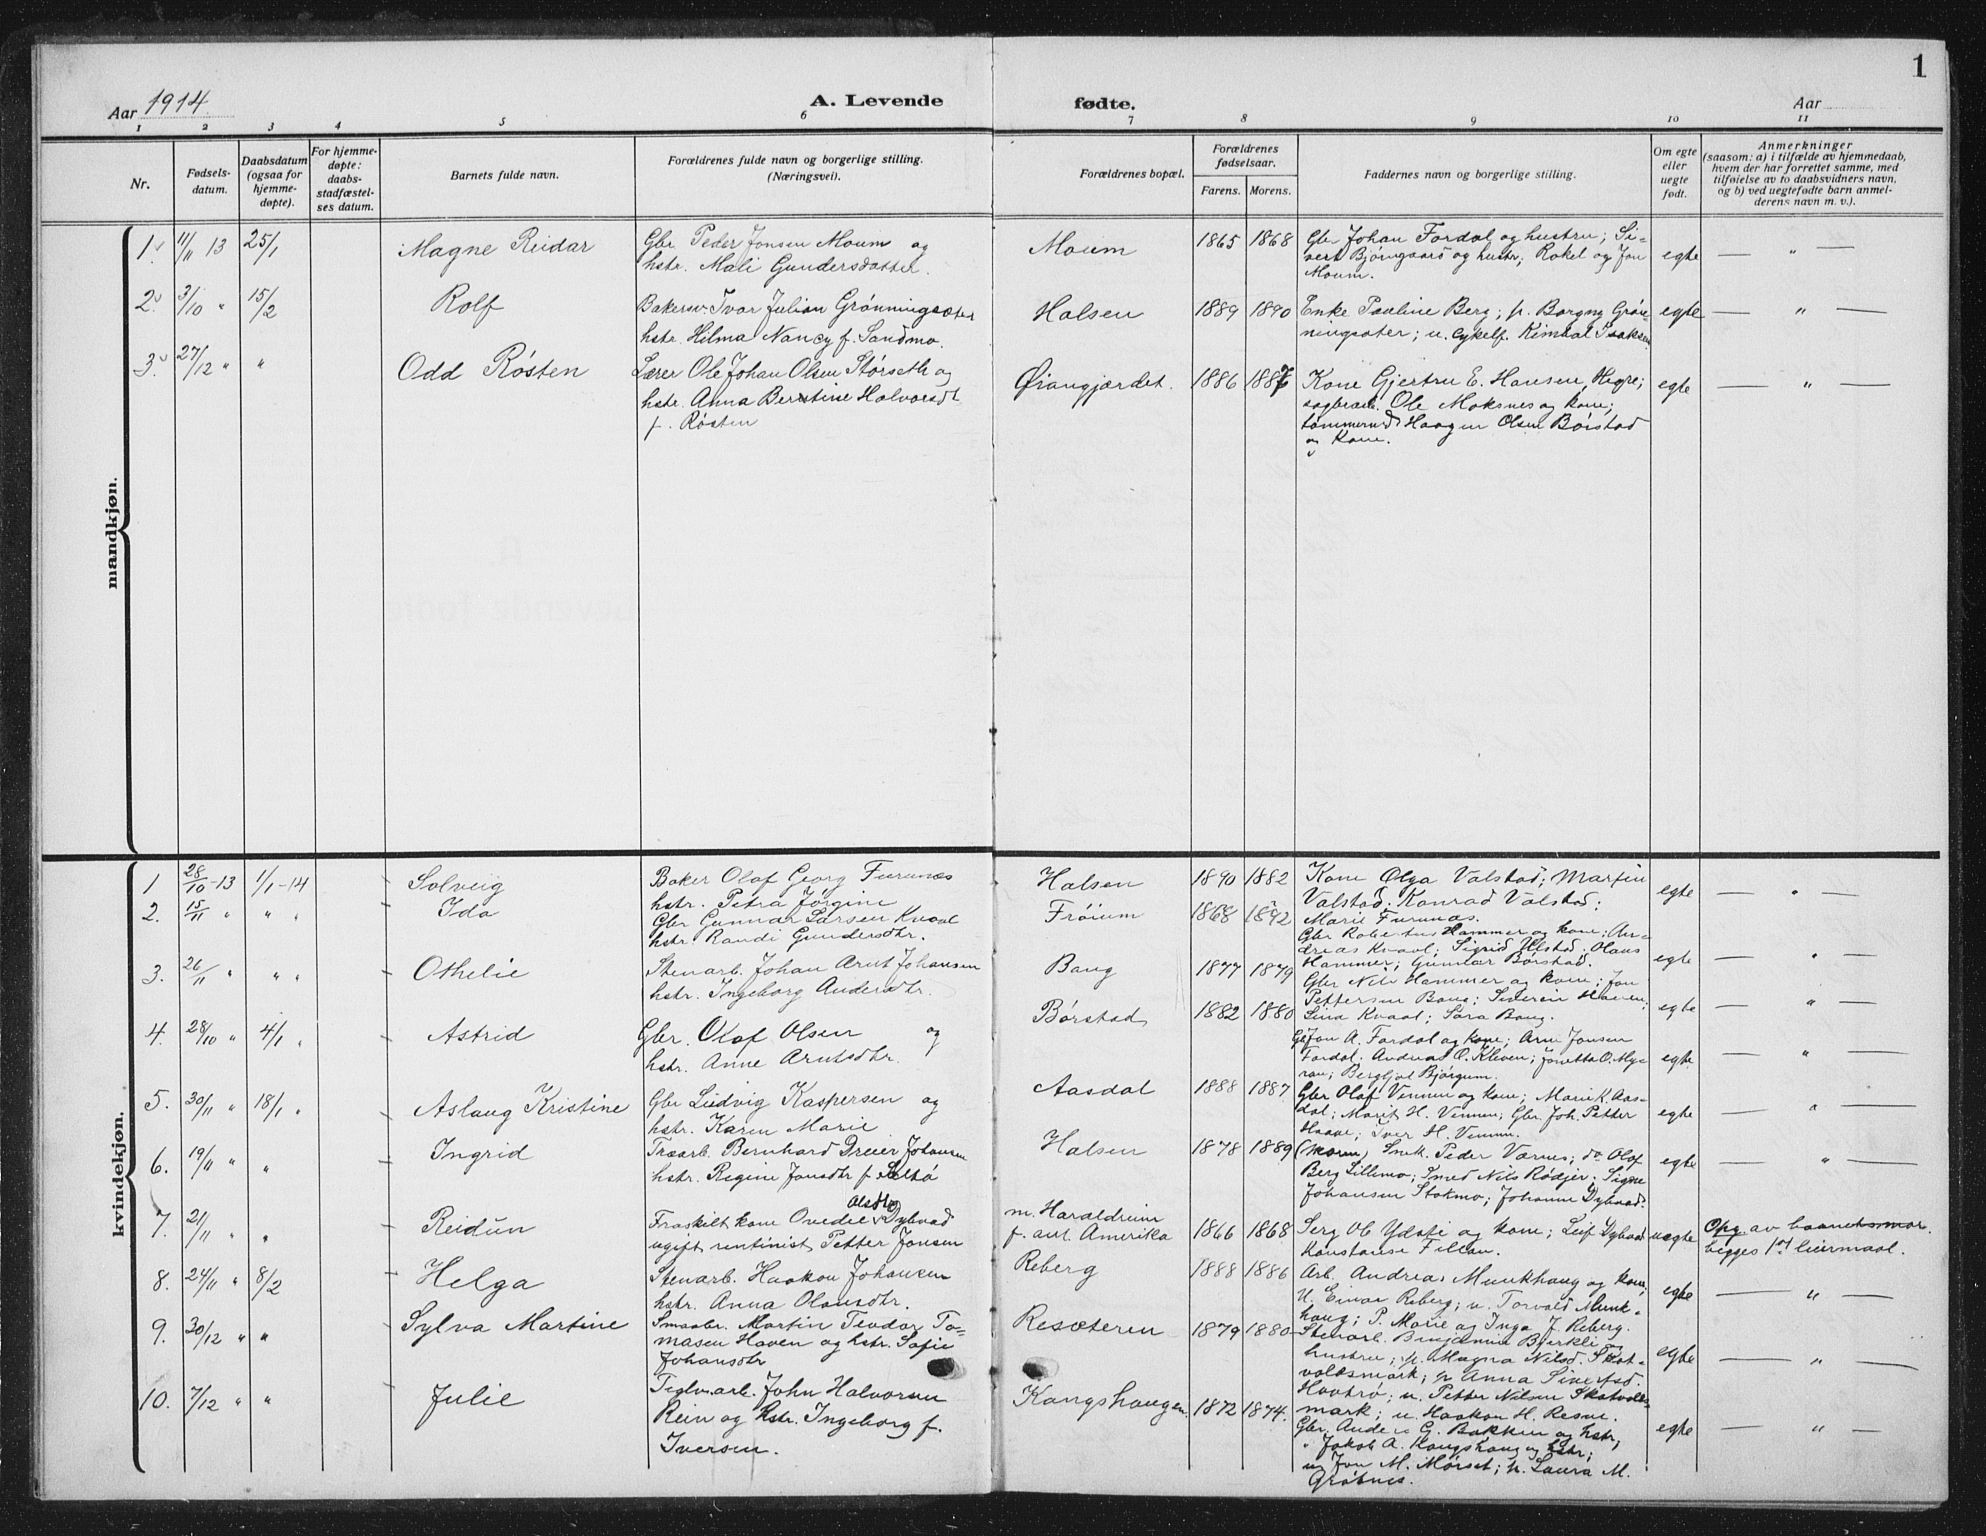 1
Aar 1914 A. Levende fødte. Aar
1 2 3 4 5 6 7 8 9 10 11
Nr.
Fødsels-
datum.
Daabsdatum
(ogsaa for
hjemme-
døpte).
For hjemme-
døpte:
daabs-
stadfæstel-
ses datum.
Barnets fulde navn.
Forældrenes fulde navn og borgerlige stilling.
(Næringsvei).
Forældrenes bopæl.
Forældrenes
fødselsaar.
Farens. Morens.
Faddernes navn og borgerlige stilling.
Om egte
eller
uegte
født.
Anmerkninger
(saasom: a) i tilfælde av hjemmedaab,
hvem der har forrettet samme, med
tilføielse av to daabsvidners navn,
og b) ved uegtefødte barn anmel-
derens navn m. v.).
mandkjøn.
1. 11/11 13 25/1 Magne Reidar
Gbr Peder Jonsen Moum og
hstr. Mali Gundersdatter.
Moum 1865 1868
Gbr Johan Fordal og hustru; Si-
vert Bjørngaard og hustr; Rakel og Jon
Moum.
egte — " —
2. 3/10 " 15/2 Rolf
Bakersv. Ivar Julian Grønningsæter
hstr. Hilma Nancy f. Sandmo.
Halsen 1889 1890
Enke Pauline Berg; p. Borgny Grøn-
ningsæter; u. cykelf. Kimbal Isaksen
egte — " —
3. 27/12 " " Odd Røsten
Lærer Ole Johan Olsen Størseth og
hstr. Anna Berntine Halvorsdt
f. Røsten
Øiangjærdet. 1886 1887
Kone Gjertru E. Hansen, Hegre;
sagbrarb. Ole Moksnes og kone;
tømmermd Haagen Olsen Børstad
og kone.
egte — " —
kvindekjøn.
1 28/10 -13 1/1 -14 Solveig
Baker Olaf Georg Furunæs
hstr. Petra Jørgine
Halsen 1890 1882
Kone Olga Valstad; Martin
Valstad; Konrad Valstad;
Marie Furunæs.
egte — " —
2. 15/11 " " " Ida
Gbr Gunnar Larsen Kvaal
hstr. Randi Gundersdtr.
Frøium 1868 1892
Gbr Robertus Hammer og kone; An-
dreas Kvaal; Sigrid Ulstad; Olaus
Hammer; Gunnar Børstad.
egte — " —
3. 26/11 " " " Othelie
Stenarb. Johan Arnt Johansen
hstr. Ingeborg Andersdtr.
Bang 1877 1879
Gbr Nils Hammer og kone; Jon
Pettersen Bang; Severin Haven;
Lina Kvaal; Sara Bang.
egte — " —
4. 28/10 " 4/1 " Astrid
Gbr. Olaf Olsen og
hstr. Anne Arntsdtr.
Børstad 1882 1880
Gbr Jon A. Fordal og kone; Arne Jonsen
Fordal; Andreas O. Kleven; Jonetta O. My-
ran; Bergljot Bjørgum.
egte — " —
5. 30/11 " 18/1 " Aslaug Kristine
Gbr Ludvig Kaspersen og
hstr. Karen Marie
Aasdal 1888 1887
Gbr Olaf Vennen og kone; Marie K. Aas-
dal; Marit H. Vennen; Gbr. Joh. Petter
Haave; Iver H. Vennen.
egte — " —
6. 19/11 " " Ingrid
Træarb. Bernhard Dreier Johansen
hstr. Regine Jonsdtr f. Selbø
Halsen 1878 1889
(Moren) Smek. Peder Værnes; do Olaf
Berg Lillemo; Smed Nils Rødjer; Signe
Johansen Stokmo; Johanne Dybvad.
egte — " —
7. 21/11 " " Reidun
Olsdtr
Fraskilt kone Ovedie Dybvad
ugift rentinist Petter Jonsen
m. Haraldreina
f. ant. Amerika 1866 1868
Serg Ob Ydsti og kone; Leif Dybvad
Konstanse Fillan.
uegte
Opg av barnets mor.
begges 1st leiermaal.
8. 24/11 " 8/2 Helga
Stenarb. Haakon Johansen
hstr. Anna Olausdtr.
Reberg 1888 1886
Arb. Andreas Munkhaug og kone;
U. Einar Reberg; u. Torvald Munk-
haug; P. Marie og Inga J. Reberg.
egte — " —
9. 30/12 " " Sylva Martine
Smaabr. Martin Teodor To-
masen Haven og hstr. Sofie
Johansdtr
Resæteren 1879 1880
Stenarb. Benjamin Bjerkli og
hustru; p. Magna Nilsd. Skat-
valsmark; p Anna Sivertsd.
Havbrø; u. Petter Nilsen Skatvals-
mark; u. Haakon H. Resve.
egte — " —
10. 7/12 " " Julie
Teglv.arb. John Halvorsen
Rein og hstr. Ingeborg f.
Iversen.
Kongshaugen 1872 1874.
Gbr. Anders G. Bakken og hstr;
" Jakob A. Kongshaug og hstr;
u. Jon M. Mørset; p. Laura M.
Grøtnes.
egte — " —